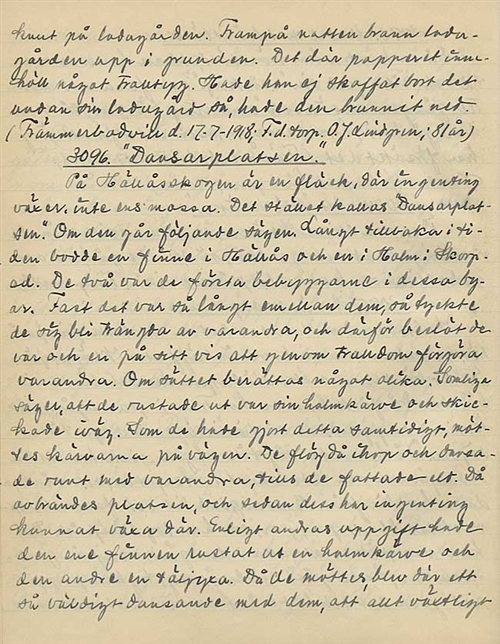 knut på ladugården. Frampå natten brann ladu-
gården upp i grunden. Det där papperet inne-
höll något trolltyg. Hade han ej skaffat bort det
undan sin ladugård så, hade den brunnit ned.
(Trämmerbodvin d. 17-7-1918, F.d. torp. O. J. Lindgren, 81 år)
3096. "Dansarplatsen."
På Hällåsskogen är en fläck, där ingenting
växer, inte ens mossa. Det stället kallas "Dansarplat-
sen". Om den går följande sägen. Långt tillbaka i ti-
den bodde en finne i Hällås och en i Holm i Skorp-
ad. De två var de första bebyggarne i dessa by-
ar. Fast det var så långt emellan dem, så tyckte
de sig bli trängda av varandra, och därför beslöt de
var och en på sitt vis att genom trolldom förgöra
varandra. Om sättet berättas något olika. Somliga
säger, att de rustade ut var sin halmkärve och skic-
kade iväg. Som de hade gjort detta samtidigt, möt-
tes kärvarna på vägen. De flög då ihop och dansa-
de runt med varandra, tills de fattade eld. Då
avbrändes platsen, och sedan dess har ingenting
kunnat växa där. Enligt andras uppgift hade
den ene finnen rustat ut en halmkärve och
den andre en täljyxa. Då de möttes, blev där ett
så väldigt dansande med dem, att allt växtligt